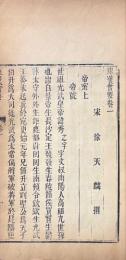 東漢會要卷一
宋 徐天麟 撰
帝系上
帝號
世祖光武皇帝諱秀字文叔南陽人高祖九世孫
也出自景帝生長沙定王發發生舂陵節侯買買生鬱
林太守外外生鉅鹿都尉回回生南頓令欽欽生光武
王莽末起兵於宛更始元年立劉聖公為天子
伯升為大司徒光武為太常偏將軍